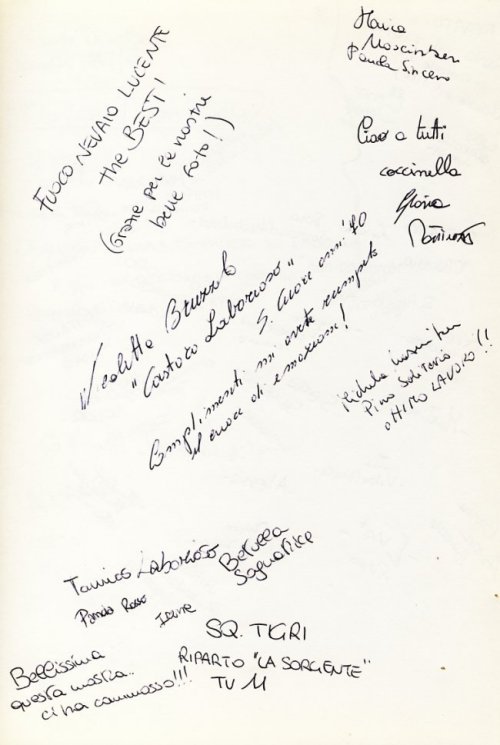 FUOCO NEVAIO LUCENTE
the BEST!
(Grazie per le nostre
belle foto!)
Panda Sincero
Ciao a tutti
coccinella
Gloria
Nicoletta Bruzzolo
"Castoro Laborioso"
S. Cuore anni '70
Complimenti mi avete riempito
il cuore di emozioni!
Michela
Pino Solitario
OTTIMO LAVORO!!
Tamias LABORIOSO
Panda Rosso
Irene
BETULLA
Sognatrice
SQ. TIGRI
RIPARTO "LA SORGENTE"
TV 11
Bellissima
questa mostra..
ci ha commosso!!!